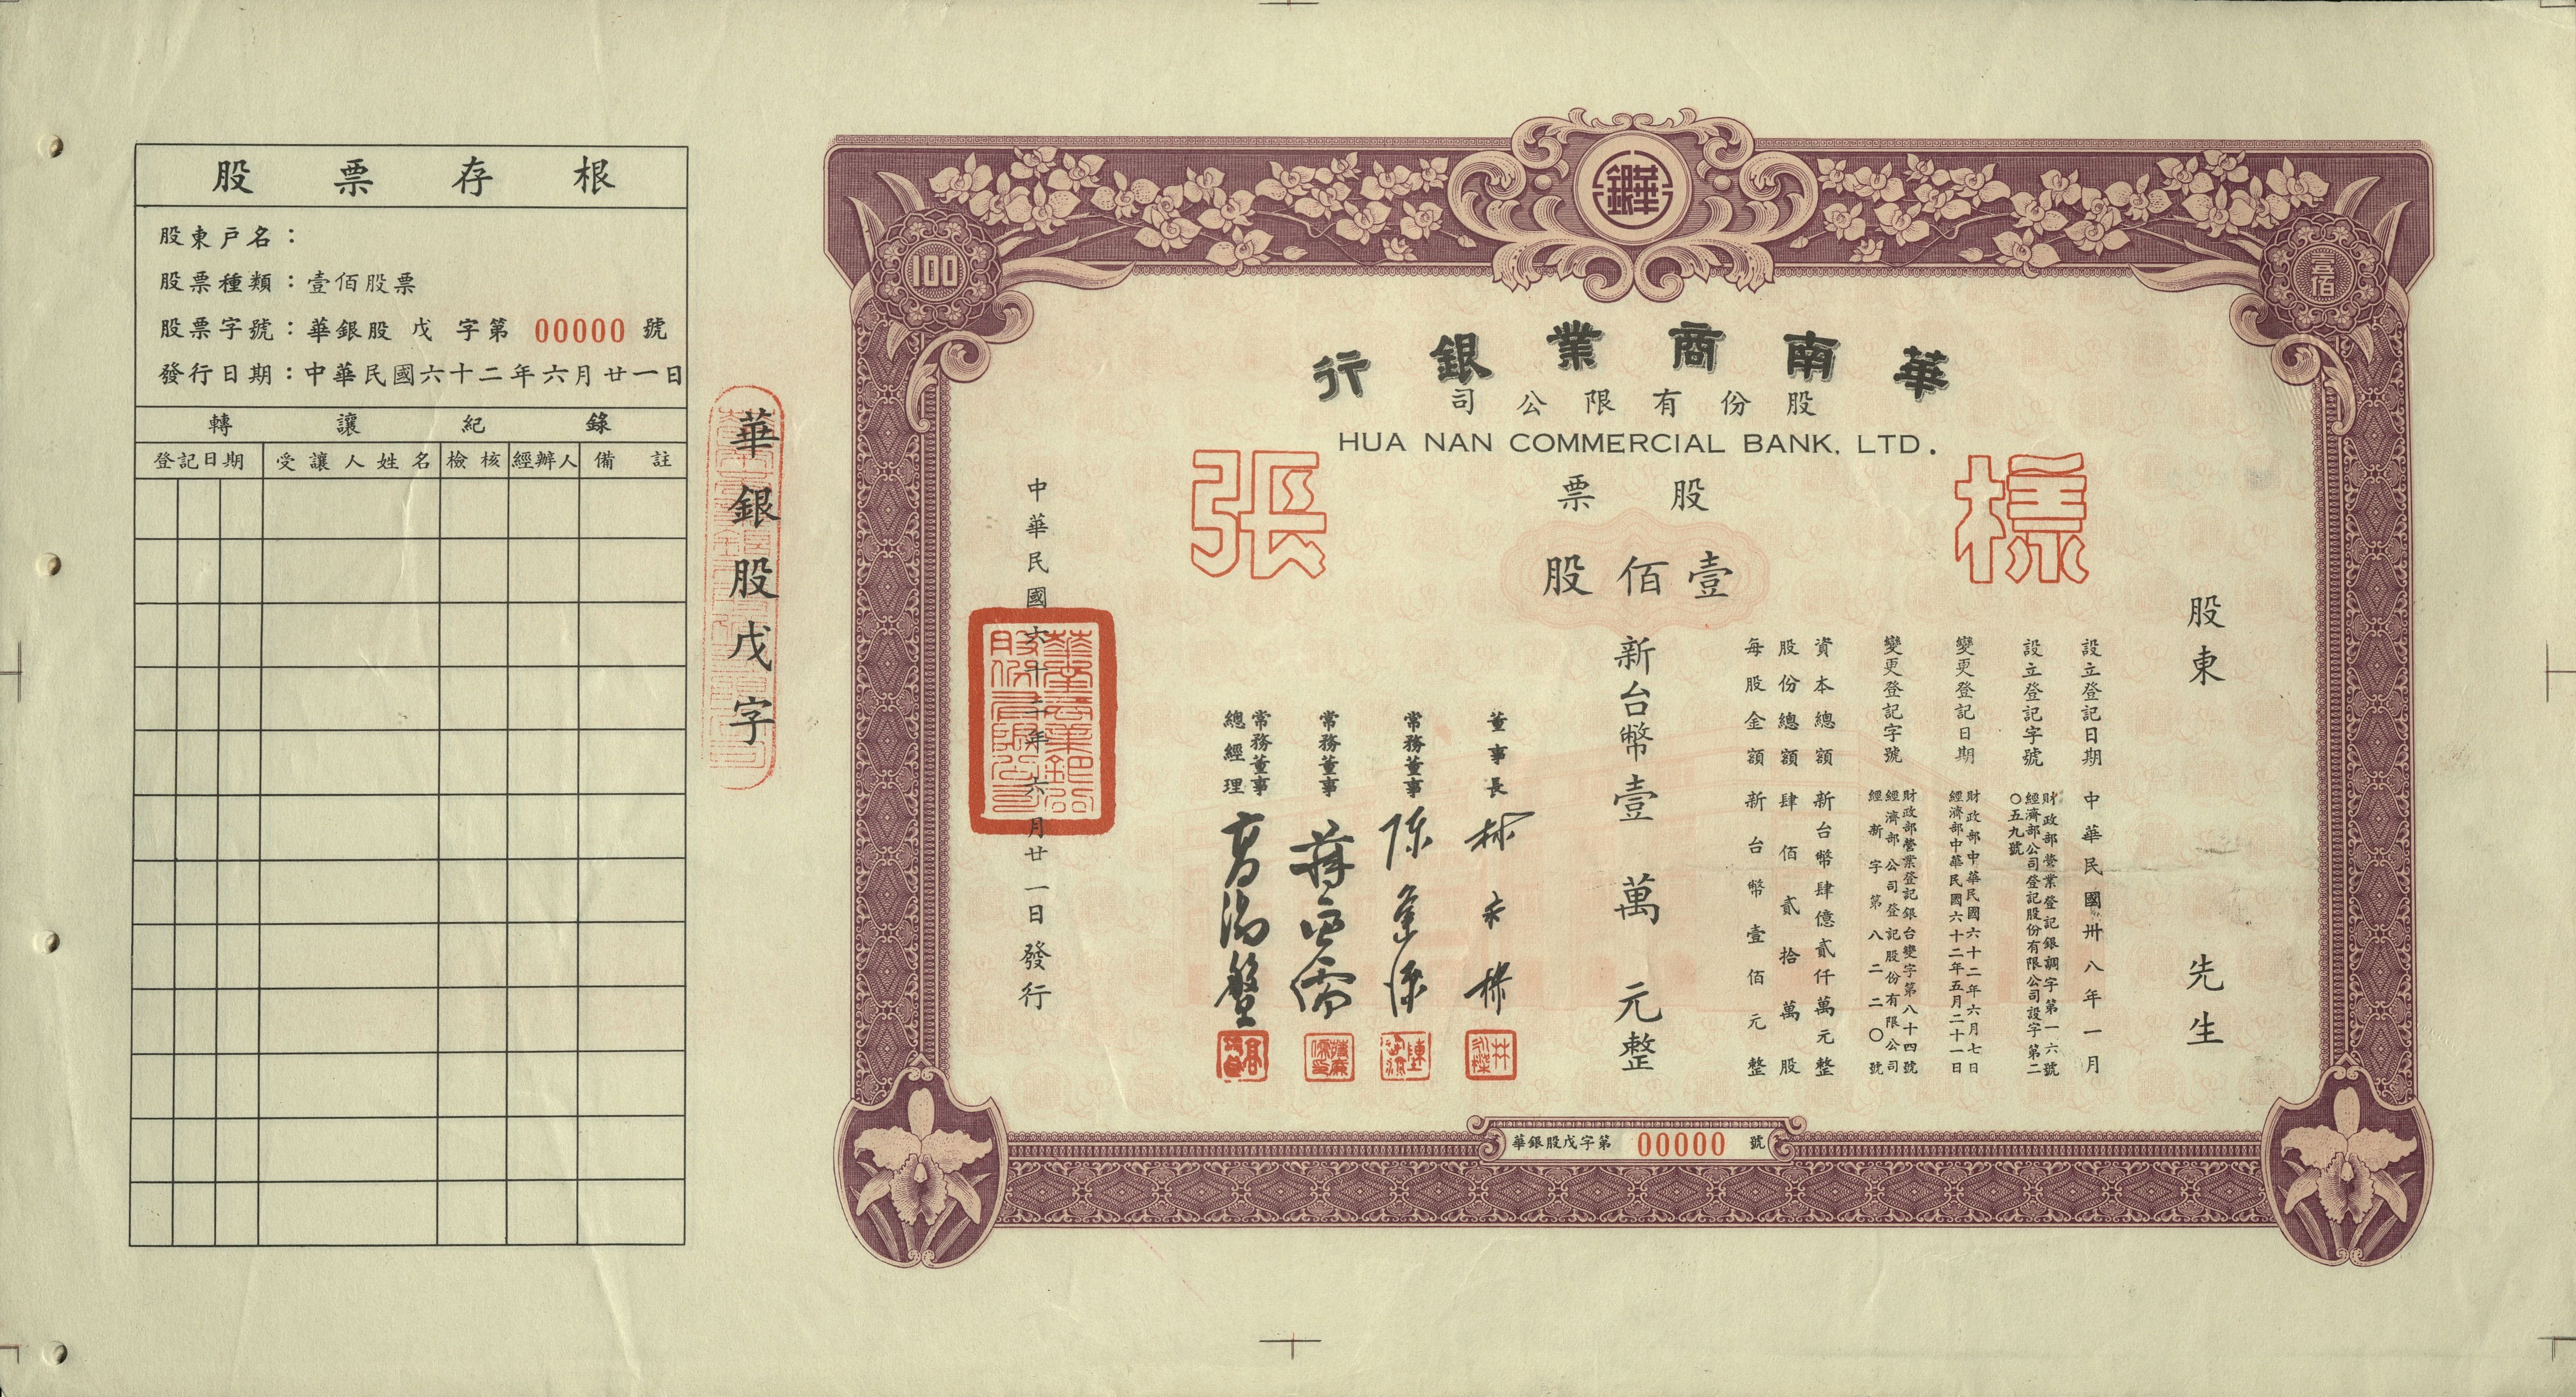 股票存根
股東戶名：
股票種類：壹佰股票
股票字號：華銀股 戊 字第 00000 號
發行日期：中華民國六十二年六月廿一日
轉讓紀錄
登記日期 受讓人姓名 檢核 經辦人 備註
華銀股戊字
華銀
100
壹佰
華南商業銀行
股份有限公司
HUA NAN COMMERCIAL BANK, LTD.
樣張
股票
壹佰股
股東 先生
設立登記日期 中華民國卅八年一月
設立登記字號 財政部營業登記銀調字第一六號
經濟部公司登記股份有限公司設字第二〇五九號
變更登記日期 財政部中華民國六十二年六月七日
經濟部中華民國六十二年五月二十一日
變更登記字號 財政部營業登記銀台變字第八十四號
經濟部公司登記股份有限公司
經新字第八二二〇號
資本總額 新台幣肆億貳仟萬元整
股份總額 肆佰貳拾萬股
每股金額 新台幣壹佰元整
新台幣壹萬元整
董事長
常務董事
常務董事
常務董事
總經理
中華民國六十二年六月廿一日發行
華南商業銀行股份有限公司
華銀股戊字第 00000 號